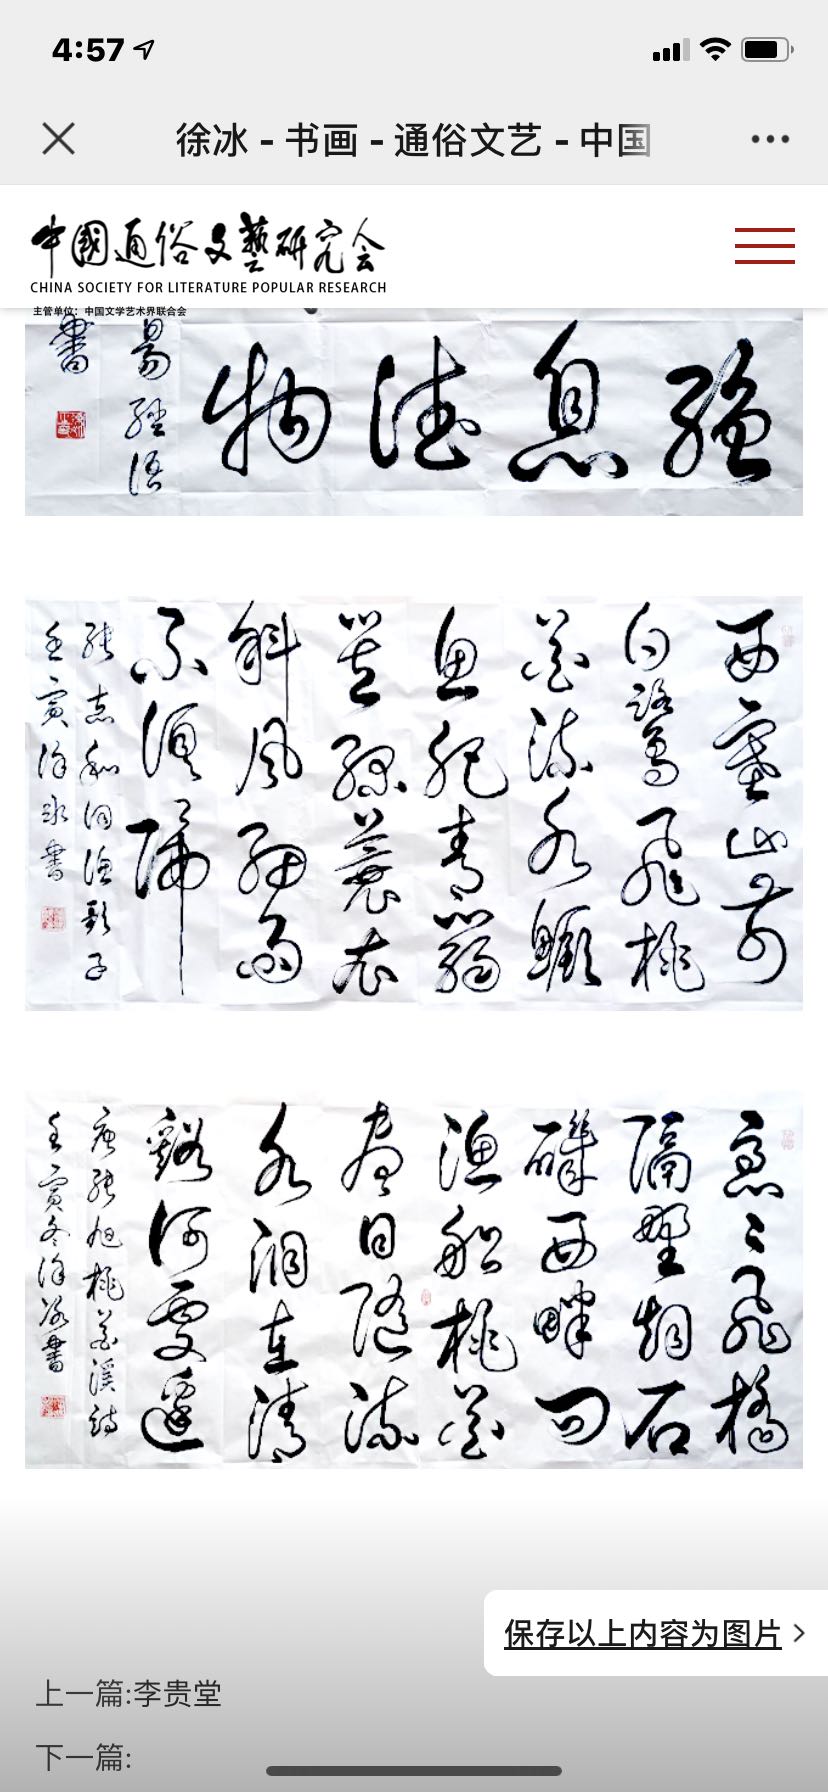 4:57
徐冰 - 书画 - 通俗文艺 - 中国
中國通俗文藝研究会
CHINA SOCIETY FOR LITERATURE POPULAR RESEARCH
主管单位：中国文学艺术界联合会
強
息
德
物
易經語
書
西塞山前
白鷺飛桃
花流水鱖
魚肥青箬
笠綠蓑衣
斜風細雨
不須歸
張志和詞漁歌子
壬寅徐冰書
隱隱飛橋
隔野烟石
磯西畔問
漁船桃花
盡日隨流
水洞在清
谿何處邊
唐張旭桃花溪詩
壬寅冬徐冰書
保存以上内容为图片
上一篇:李贵堂
下一篇: